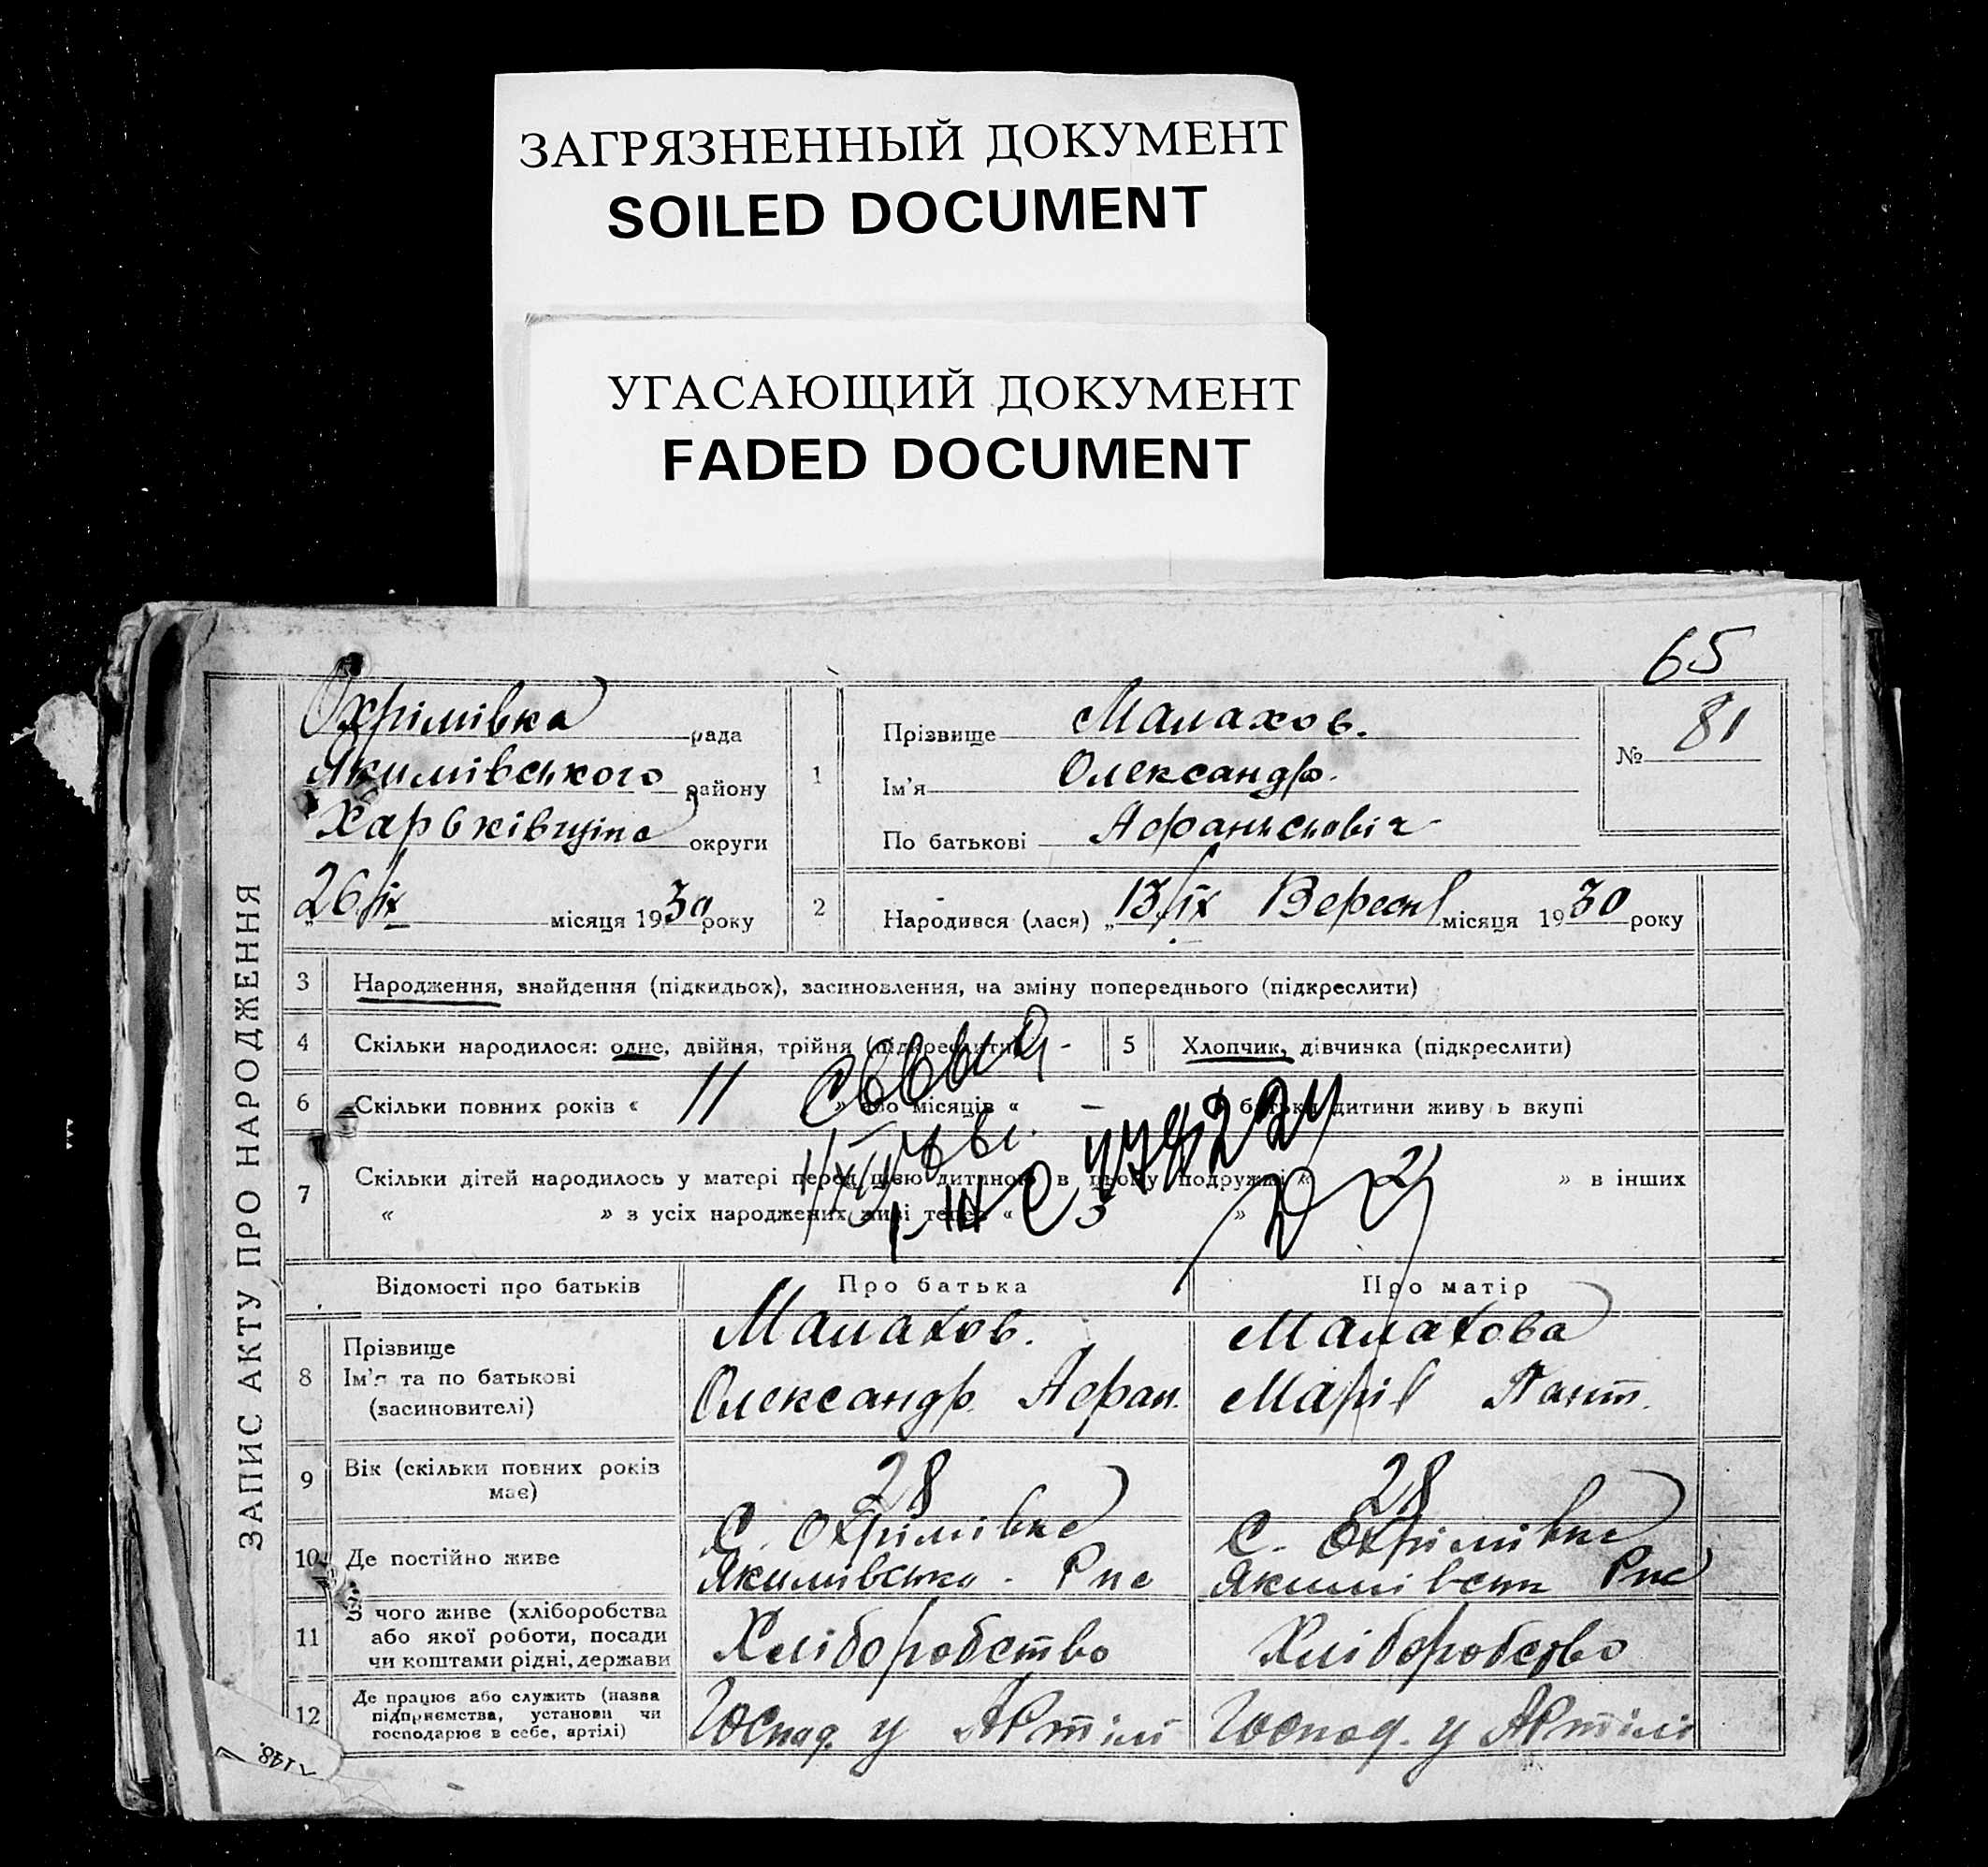 ЗАГРЯЗНЕННЫЙ ДОКУМЕНТ
SOILED DOCUMENT
УГАСАЮЩИЙ ДОКУМЕНТ
FADED DOCUMENT
65
ЗАПИС АКТУ ПРО НАРОДЖЕННЯ
Охрімівка рада
Якимівського району
Харьківщіна округи
26/ІХ місяця 1930 року
1
Прізвище Малахов.
Ім'я Олександр.
По батькові
№ 81
2
Народився (лася) „13/ІХ Вересня місяця 1930 року
3 Народження, знайдення (підкидьок), засиновлення, на зміну попереднього (підкреслити)
4 Скільки народилося: одне, двійня, трійня (підкреслити)
5 Хлопчик, дівчинка (підкреслити)
6 Скільки повних років « 11 » або місяців « — » батьки дитини живуть вкупі
7 Скільки дітей народилось у матері перед цією дитиною в цьому подружжі « 2 » в інших
« » з усіх народжених живі тепер « 3 »
Відомості про батьків Про батька Про матір
8 Прізвище
Ім'я та по батькові
(засиновителі)
Малахов.
Олександр. Афан.
Малахова
Марія Пант.
9 Вік (скільки повних років
має)
28
28
10 Де постійно живе
С. Охрімівка
С. Охрімівка
11 З чого живе (хліборобства
або якої роботи, посади
чи коштами рідні, держави
Хліборобство
Хліборобство
12 Де працює або служить (назва
підприємства, установи чи
господарює в себе, артілі)
Господ. у Артілі
Господ. у Артілі
148.